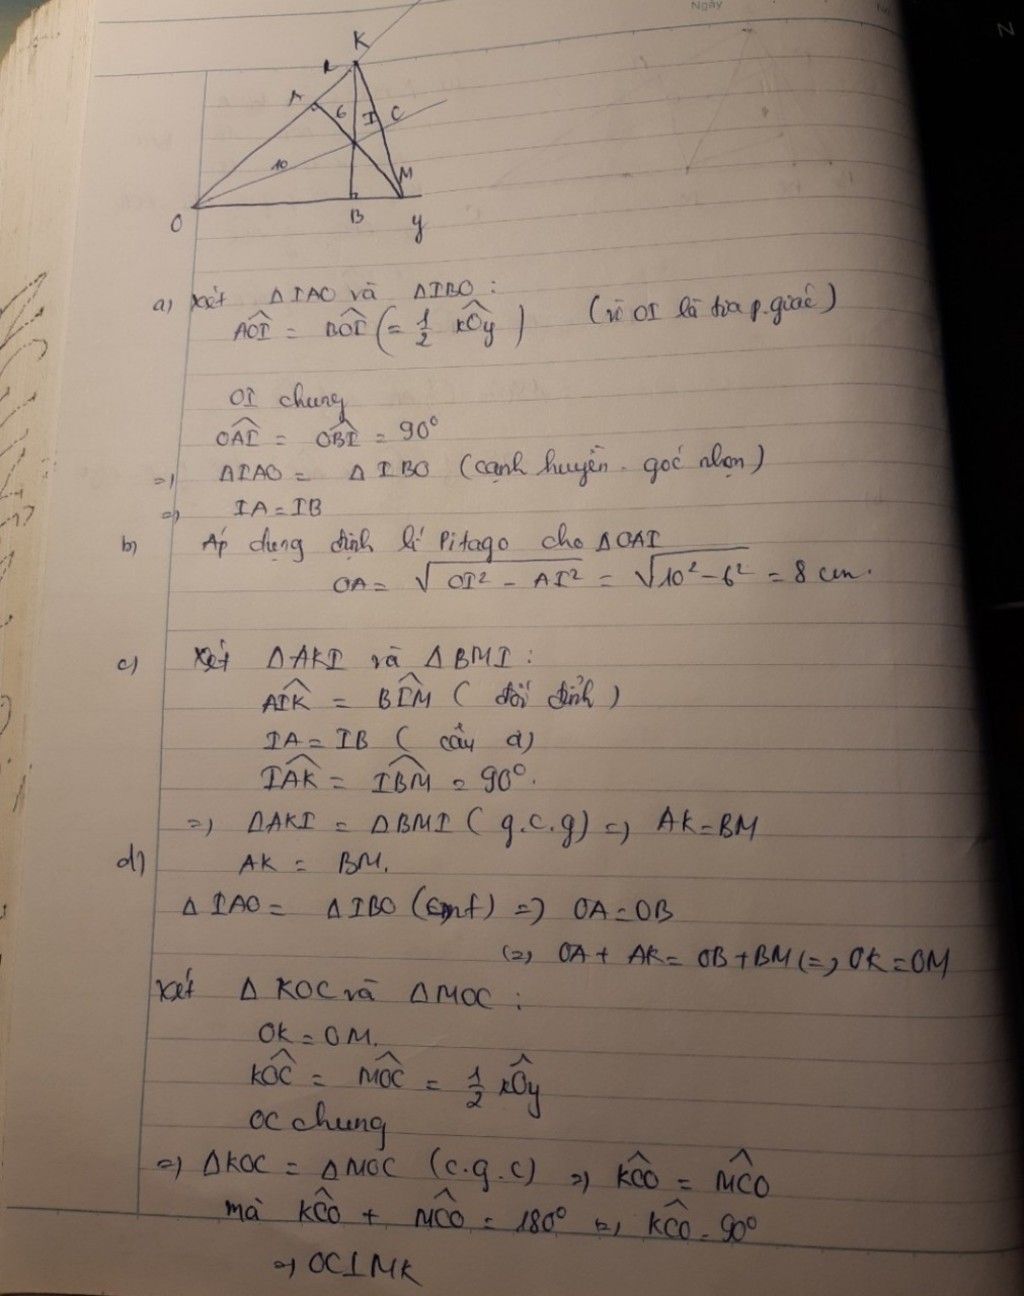 Ngày
K
x
A
6
I
C
10
M
O
B
y
a) Xét ΔIAO và ΔIBO :
AÔI = BÔI (= 1/2 xÔy) (vì OI là tia p.giác)
OI chung
OÂI = OB̂I = 90°
=) ΔIAO = ΔIBO (cạnh huyền - góc nhọn)
=) IA = IB
b) Áp dụng định lí Pitago cho ΔOAI
OA = √OI² - AI² = √10² - 6² = 8 cm.
c) Xét ΔAKI và ΔBMI :
AÎK = BÎM ( đối đỉnh )
IA = IB ( câu a)
IÂK = IB̂M = 90°.
=) ΔAKI = ΔBMI ( g.c.g) =) AK = BM
d) AK = BM.
ΔIAO = ΔIBO (cmt) =) OA = OB
(=) OA + AK = OB + BM (=) OK = OM
Xét ΔKOC và ΔMOC :
OK = OM.
KÔC = MÔC = 1/2 xÔy
OC chung
=) ΔKOC = ΔMOC (c.g.c) =) KĈO = MĈO
mà KĈO + MĈO = 180° =) KĈO = 90°
=) OC⊥MK